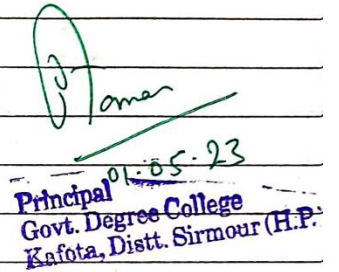 01.05.23
Principal
Govt. Degree College
Kafota, Distt. Sirmour (H.P.